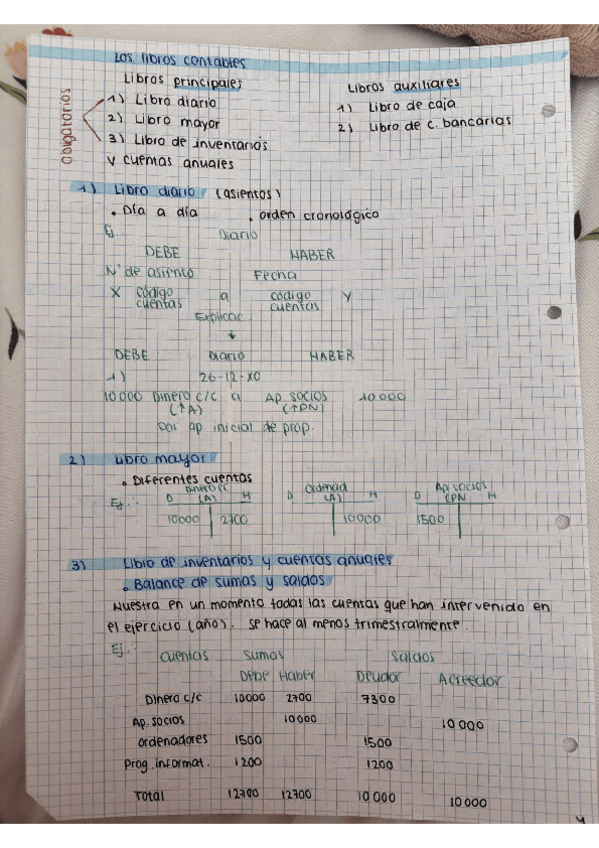 Los libros contables
Libros principales
Obligatorios
1) Libro diario
2) Libro mayor
3) Libro de inventarios
y cuentas anuales
Libros auxiliares
1) Libro de caja
2) Libro de c. bancarias
1) Libro diario (asientos)
• Día a día • orden cronológico
Ej. Diario
DEBE HABER
Nº de asiento Fecha
X código cuentas a código cuentas Y
Explicac.
↓
DEBE Diario HABER
1) 26-12-X0
10000 Dinero c/c a Ap. socios 10000
(↑A) (↑PN)
Por ap. inicial de prop.
2) Libro mayor
• Diferentes cuentas
Ej.:
D (A) H
10000 2700
D (A) H
10000
Ap. socios
D (PN H
1500
3) Libro de inventarios y cuentas anuales
• Balance de sumas y saldos
Muestra en un momento todas las cuentas que han intervenido en
el ejercicio (año). Se hace al menos trimestralmente.
Ej.:
Cuentas Sumas Saldos
Debe Haber Deudor Acreedor
Dinero c/c 10000 2700 7300
Ap. socios 10000 10000
ordenadores 1500 1500
Prog. informat. 1200 1200
Total 12700 12700 10000 10000